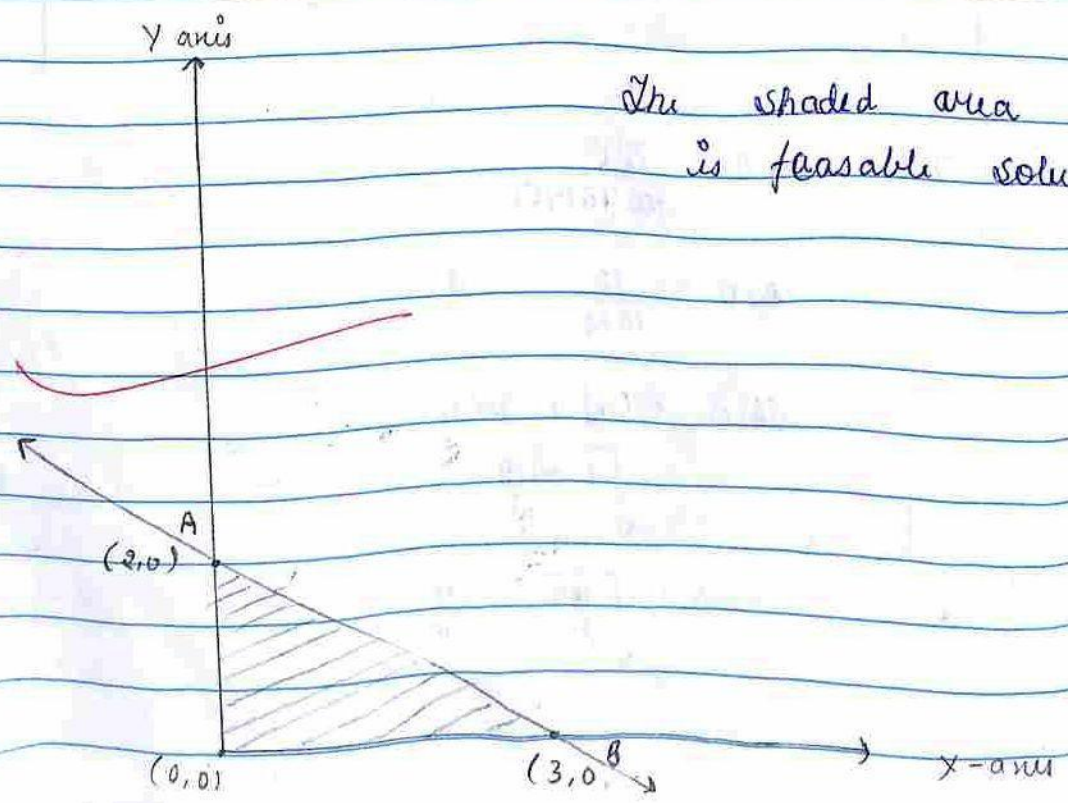 Y axis
The shaded area
is feasable solu
A
(2,0)
(0,0)
(3,0
B
X-axis